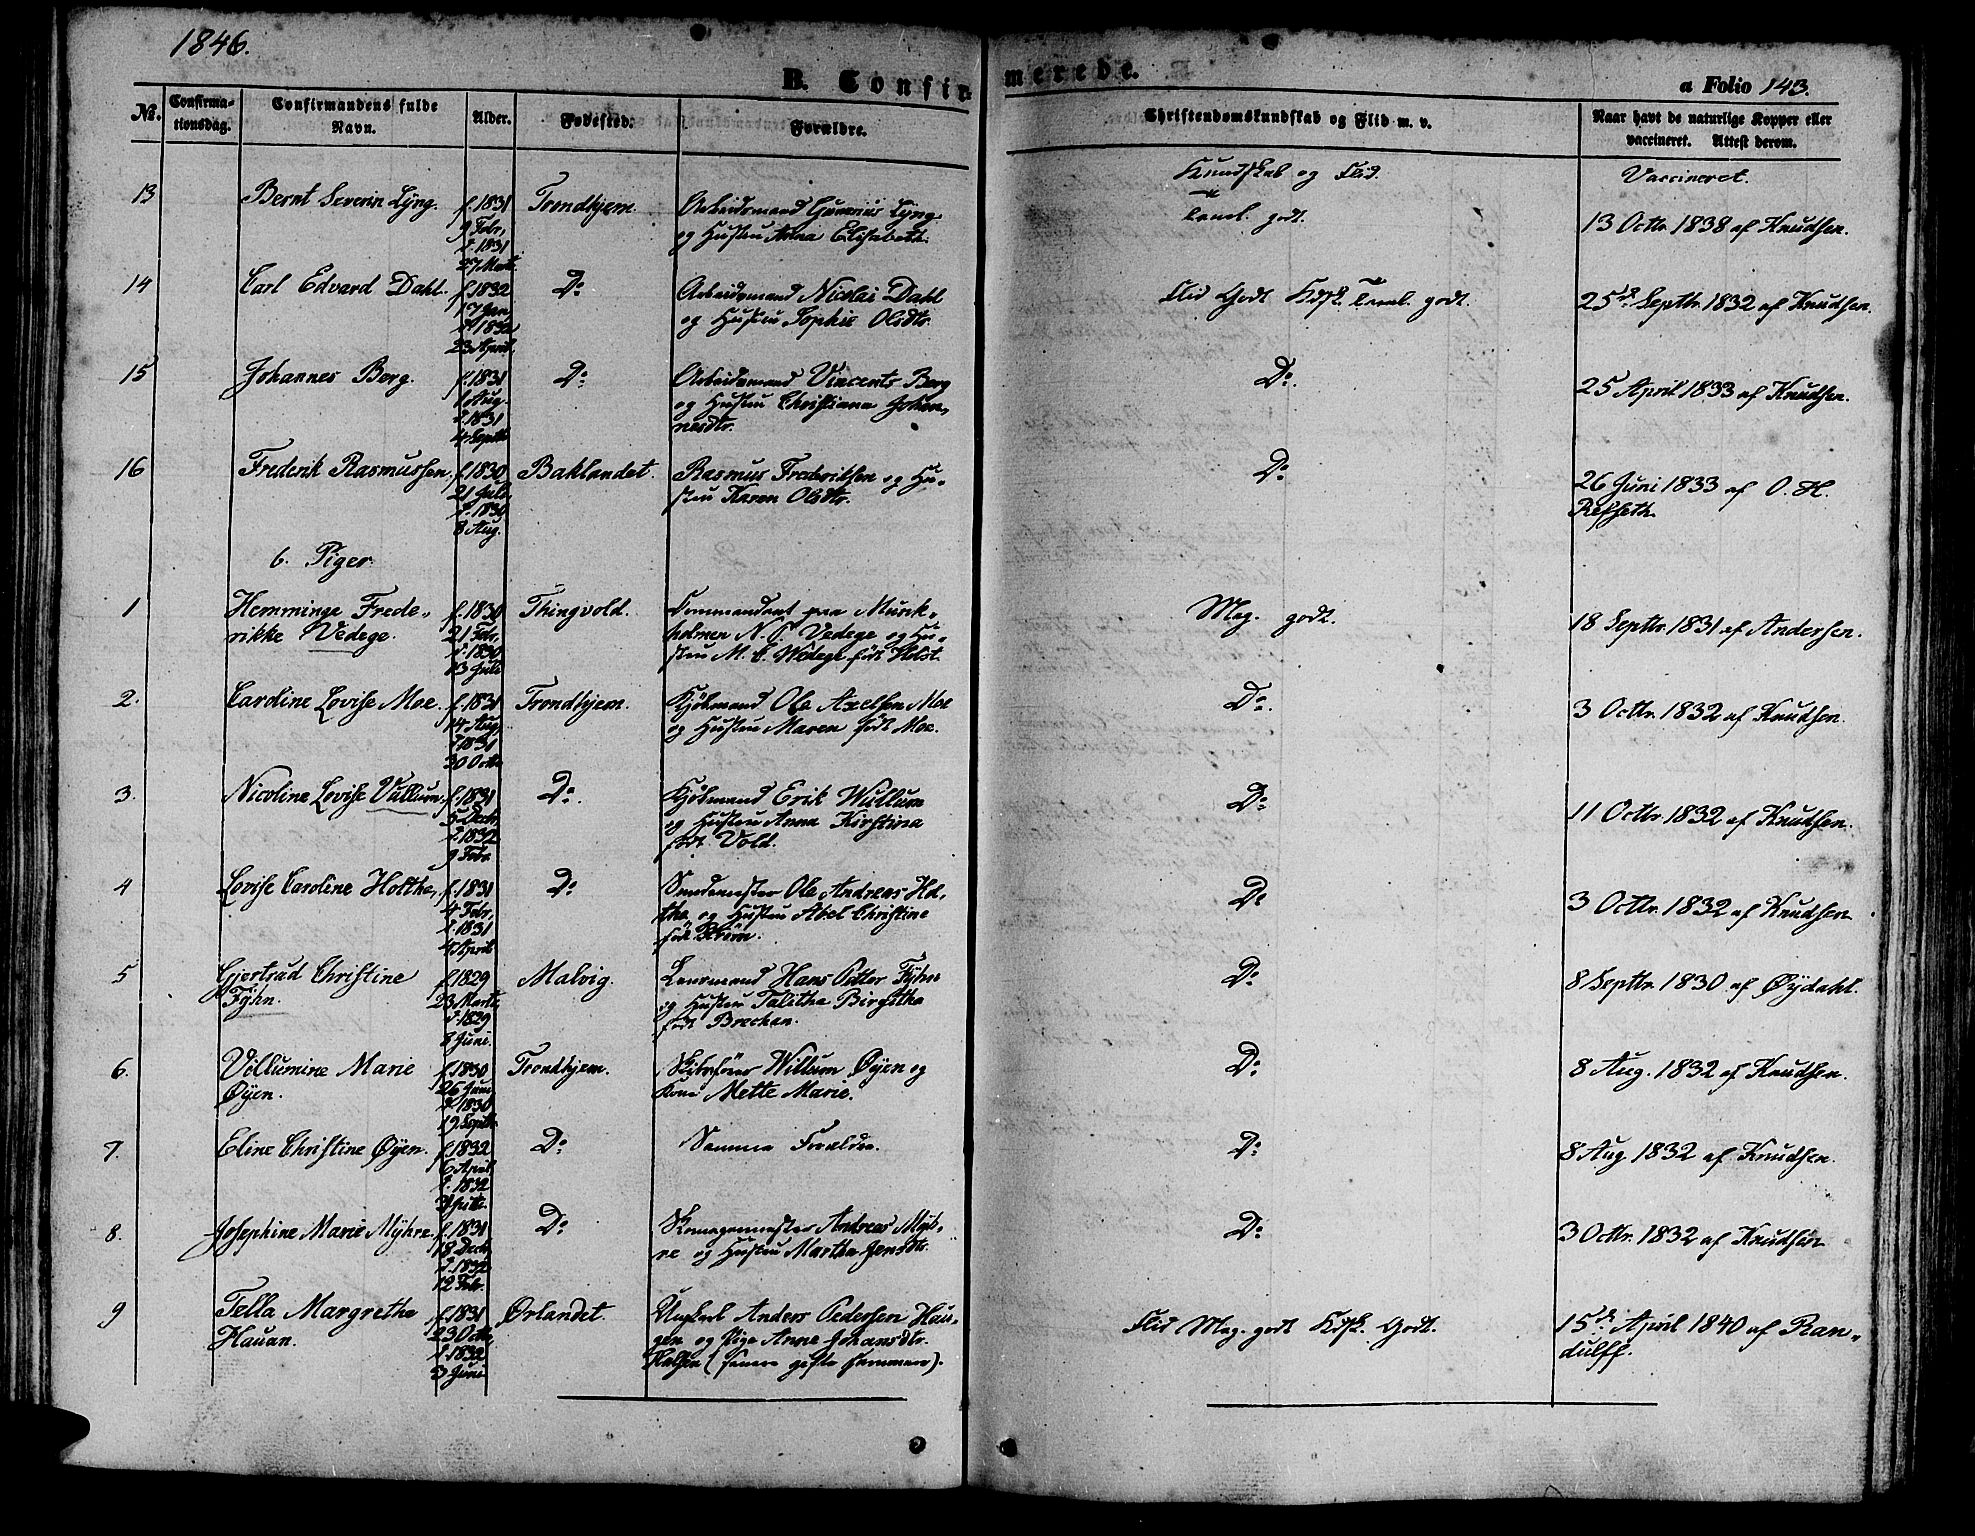 1846.
B. Confirmerede.
a Folio 143.
No.
Confirma-
tionsdag.
Confirmandens fulde
Navn.
Alder.
Fødested.
Forældre.
Christendomskundskab og Flid m. v.
Naar havt de naturlige Kopper eller
vaccineret. Attest derom.
Kundskab og Flid.
Vaccineret.
13
Bernt Severin Lyng.
f. 1831
9 Febr,
d. 1831
27 Marts
Trondhjem.
Arbeidsmand Gunerius Lyng
og Hustru Anna Elisabeth.
Taal. godt.
13 Octbr 1838 af Knudsen.
14
Carl Edvard Dahl.
f. 1832
17 Jan
d. 1832
23 April,
Do
Arbeidsmand Nicolai Dahl
og Hustru Sophie Olsdtr.
Flid Godt Kdsk. Taal. godt.
25de Septbr. 1832 af Knudsen.
15
Johannes Berg.
f. 1831
1 Aug.
d. 1831
4 Septbr
Do
Arbeidsmand Vincents Berg
og Hustru Christiana Johan,
nesdtr.
Do.
25 April 1833 af Knudsen.
16
Frederik Rasmussen.
f. 1830
21 Juli,
d. 1830
8 Aug.
Baklandet.
Rasmus Frederiksen og Hu-
stru Karen Olsdtr.
Do
26 Juni 1833 af O. H.
Refseth.
6. Piger.
1
Hemminge Frede„
rikke Vedege.
f. 1830
21 Febr,
d. 1830
13 Juli
Thingvold.
Commandant paa Munk„
holmen N. C. Vedege og Hu-
stru M. C. Wedege født Holst.
Meg. godt.
18 Septbr. 1831 af Andersen.
2.
Caroline Lovise Moe.
f. 1831
14 Aug,
d. 1831
30 Octbr
Trondhjem.
Kjøbmand Ole Axelsen Moe
og Hustru Maren født Moe.
Do.
3 Octbr. 1832 af Knudsen.
3.
Nicoline Lovise Vullum.
f. 1831
5 Decbr
d. 1832
9 Febr.
Do.
Kjøbmand Erik Wullum
og Hustru Anna Kirstina
født Vold.
Do
11 Octbr. 1832 af Knudsen.
4
Lovise Caroline Holthe,
f. 1831
4 Febr,
d. 1831
4 April
Do
Ole Andreas Hol-
the og Hustru Abel Christine
født
Do
3 Octbr. 1832 af Knudsen
5
Gjertrud Christine
Fyhn.
f. 1829
23 Marts,
d. 1829
8 Juni.
Malvig.
Lensmand Hans Petter Fyhn
og Hustru Talitha Birgitha
født Brechan.
Do
8 Septbr. 1830 af Øydahl.
6.
Villumine Marie
Øyen.
f. 1830
26 Juni
d. 1830
19 Septbr
Trondhjem.
Skibsfører Willum Øyen og
Kone Mette Marie.
Do
8 Aug. 1832 af Knudsen.
7.
Eline Christine Øyen.
f. 1832
6 April
d. 1832
31 Juli.
Do
Samme Forældre.
Do
8 Aug 1832 af Knudsen.
8.
Josephine Marie Myhre.
f. 1831
18 Decbr
d. 1832
12 Febr.
Do
Skomagermester Andreas Myh-
re og Hustru Martha Jensdtr.
Do
3 Octbr. 1832 af Knudsen
9
Tella Margretha
Hauan.
f. 1831
23 Octbr
d. 1832
3 Juni
Ørlandet.
Ungkarl Anders Pedersen Hau-
gen og Pige Anne Johansdtr.
Halsen (senere gifte sammen).
Flid Meg. godt Kdsk. Godt.
15de April 1840 af Ran„
dulff.